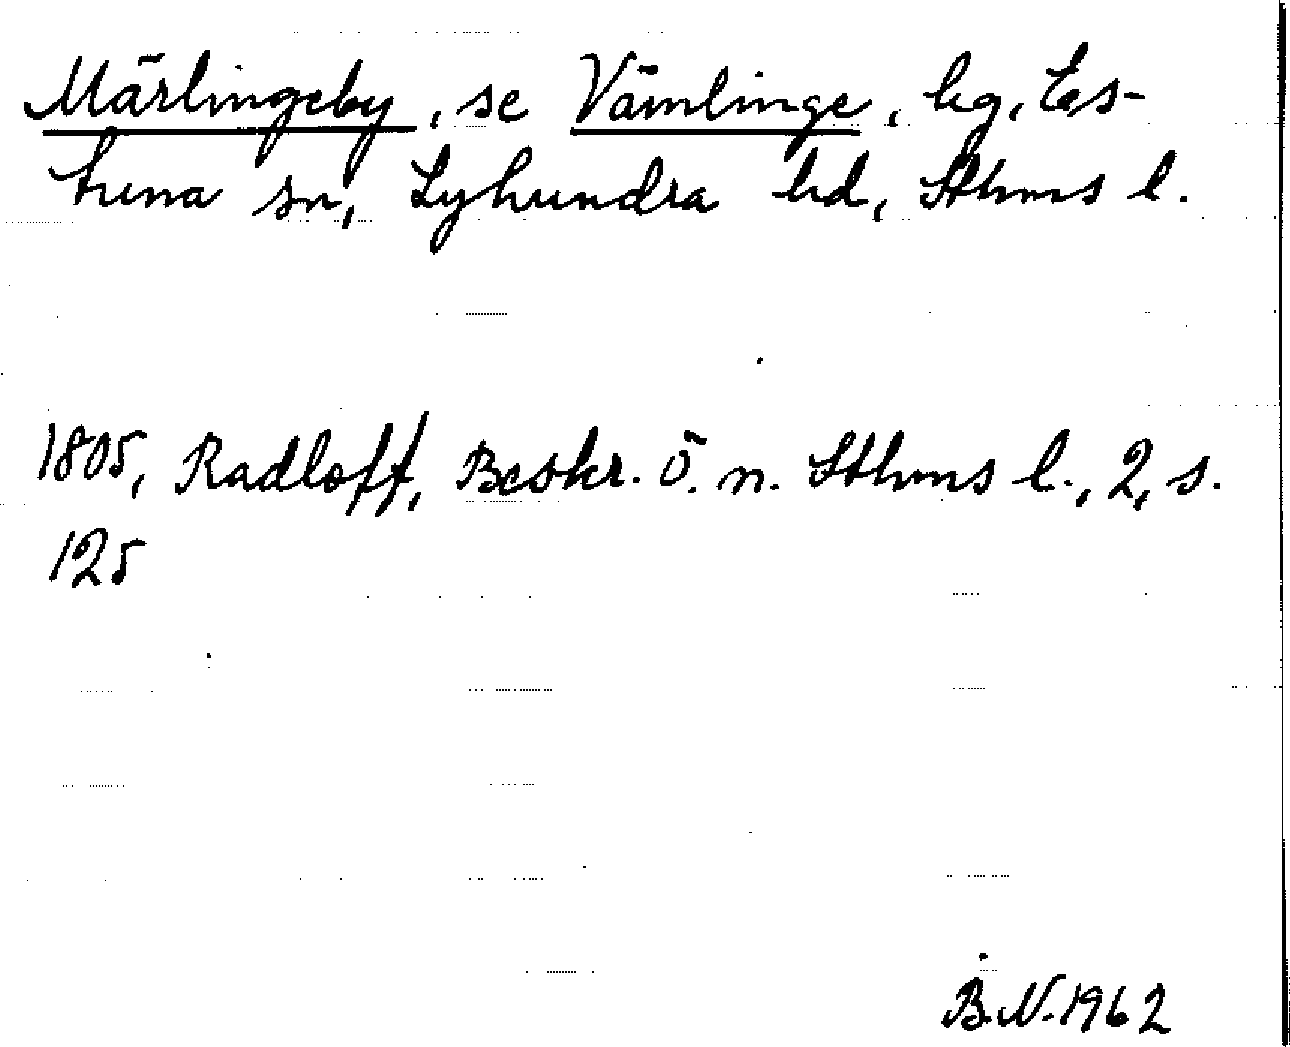 Märlingeby, se Vämlinge, hg, Es-
tuna sn, Lyhundra hd, Sthms l.
1805, Radloff, Beskr. ö. n. Sthms l., 2, s.
125
B.N. 1962